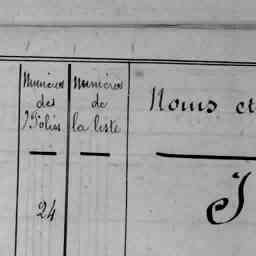 Numéros des Folios
Numéros de la liste
Noms et
24
J